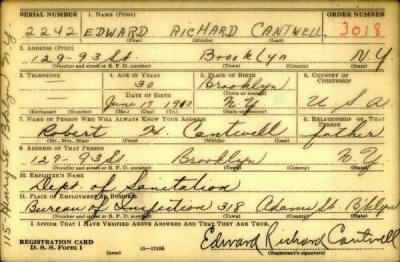 SERIAL NUMBER 1. NAME (Print) ORDER NUMBER
2242 EDWARD RICHARD CANTWELL 3018
(First) (Middle) (Last)
2. ADDRESS (Print)
129-93 St. Brooklyn N Y
(Number and street or R. F. D. number) (Town) (County) (State)
3. TELEPHONE 4. AGE IN YEARS 5. PLACE OF BIRTH 6. COUNTRY OF CITIZENSHIP
30 Brooklyn
DATE OF BIRTH (Town or county)
June 17 N.Y U.S.A
(Exchange) (No.) (Mo.) (Day) (Yr.) (State or country)
7. NAME OF PERSON WHO WILL ALWAYS KNOW YOUR ADDRESS 8. RELATIONSHIP OF THAT PERSON
Robert H. Cantwell father
(Mr., Mrs., Miss) (First) (Middle) (Last)
9. ADDRESS OF THAT PERSON
129-93 St. Brooklyn N Y
(Number and street or R. F. D. number) (Town) (County) (State)
10. EMPLOYER'S NAME
Dept. of Sanitation
11. PLACE OF EMPLOYMENT OR BUSINESS
Bureau of Inspection 318 Adams St. Bklyn
(Number and street or R. F. D. number) (Town) (County) (State)
I AFFIRM THAT I HAVE VERIFIED ABOVE ANSWERS AND THAT THEY ARE TRUE.
REGISTRATION CARD
D. S. S. Form 1 (over) 16-17105 Edward Richard Cantwell
(Registrant's signature)
115 Henry St